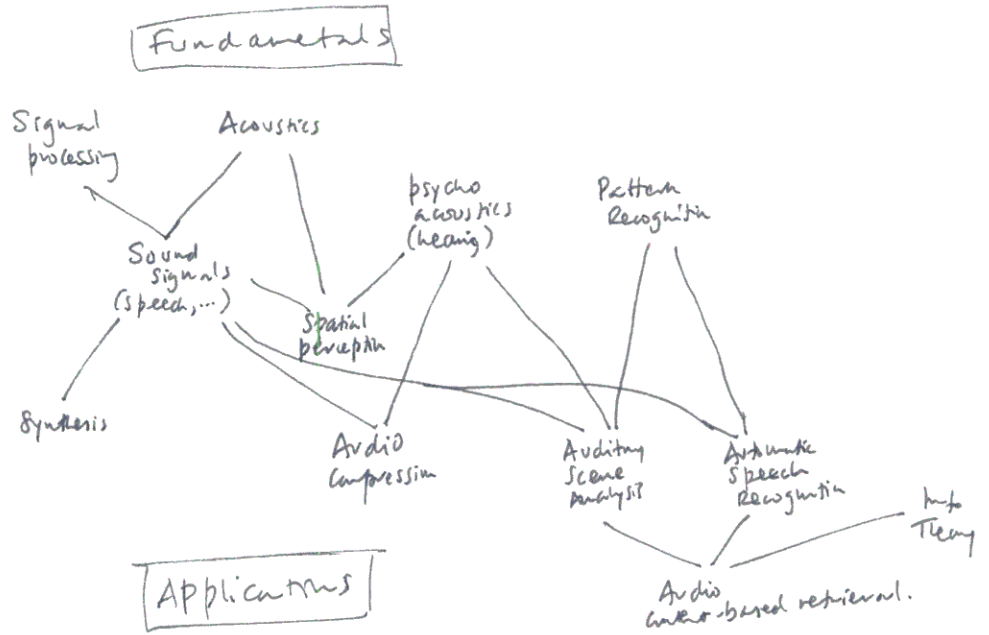 Fundametals
Signal
processing
Acoustics
psycho
acoustics
(hearing)
Pattern
Recognition
Sound
signals
(speech, ...)
Spatial
perception
Synthesis
Audio
Compression
Auditory
Scene
Analysis
Automatic
Speech
Recognition
Info
Theory
Audio
content-based retrieval.
Applications